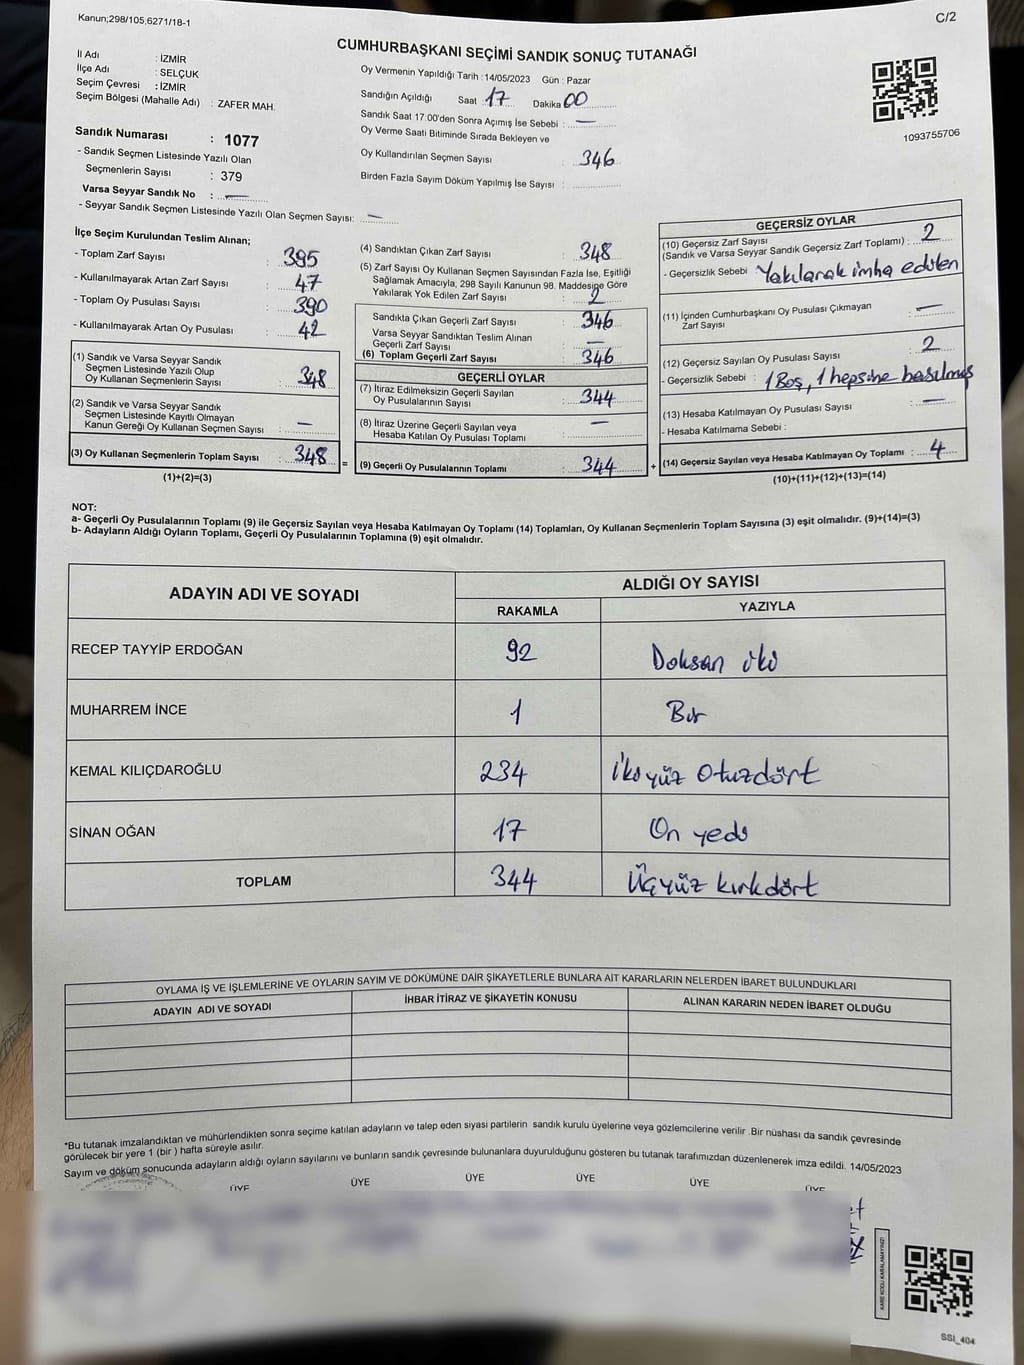 Kanun;298/105,6271/18-1
C/2
CUMHURBAŞKANI SEÇİMİ SANDIK SONUÇ TUTANAĞI
İl Adı : İZMİR
İlçe Adı : SELÇUK
Seçim Çevresi : İZMİR
Seçim Bölgesi (Mahalle Adı) : ZAFER MAH.
Sandık Numarası : 1077
- Sandık Seçmen Listesinde Yazılı Olan
Seçmenlerin Sayısı : 379
Varsa Seyyar Sandık No : —
- Seyyar Sandık Seçmen Listesinde Yazılı Olan Seçmen Sayısı: —
Oy Vermenin Yapıldığı Tarih :14/05/2023 Gün : Pazar
Sandığın Açıldığı Saat 17 Dakika 00
Sandık Saat 17:00'den Sonra Açımış İse Sebebi : —
Oy Verme Saati Bitiminde Sırada Bekleyen ve
Oy Kullandırılan Seçmen Sayısı : 346
Birden Fazla Sayım Döküm Yapılmış İse Sayısı :
1093755706
İlçe Seçim Kurulundan Teslim Alınan;
- Toplam Zarf Sayısı : 395
- Kullanılmayarak Artan Zarf Sayısı : 47
- Toplam Oy Pusulası Sayısı : 390
- Kullanılmayarak Artan Oy Pusulası : 42
(1) Sandık ve Varsa Seyyar Sandık
Seçmen Listesinde Yazılı Olup
Oy Kullanan Seçmenlerin Sayısı : 348
(2) Sandık ve Varsa Seyyar Sandık
Seçmen Listesinde Kayıtlı Olmayan
Kanun Gereği Oy Kullanan Seçmen Sayısı : —
(3) Oy Kullanan Seçmenlerin Toplam Sayısı : 348
(1)+(2)=(3)
=
(4) Sandıktan Çıkan Zarf Sayısı : 348
(5) Zarf Sayısı Oy Kullanan Seçmen Sayısından Fazla İse, Eşitliği
Sağlamak Amacıyla, 298 Sayılı Kanunun 98. Maddesine Göre
Yakılarak Yok Edilen Zarf Sayısı : 2
Sandıkta Çıkan Geçerli Zarf Sayısı : 346
Varsa Seyyar Sandıktan Teslim Alınan
Geçerli Zarf Sayısı : —
(6) Toplam Geçerli Zarf Sayısı : 346
GEÇERLİ OYLAR
(7) İtiraz Edilmeksizin Geçerli Sayılan
Oy Pusulalarının Sayısı : 344
(8) İtiraz Üzerine Geçerli Sayılan veya
Hesaba Katılan Oy Pusulası Toplamı : —
(9) Geçerli Oy Pusulalarının Toplamı : 344
+
GEÇERSİZ OYLAR
(10) Geçersiz Zarf Sayısı
(Sandık ve Varsa Seyyar Sandık Geçersiz Zarf Toplamı) : 2
- Geçersizlik Sebebi : Yakılarak imha edilen
(11) İçinden Cumhurbaşkanı Oy Pusulası Çıkmayan
Zarf Sayısı : —
(12) Geçersiz Sayılan Oy Pusulası Sayısı : 2
- Geçersizlik Sebebi : 1 Boş, 1 hepsine basılmış
(13) Hesaba Katılmayan Oy Pusulası Sayısı : —
- Hesaba Katılmama Sebebi :
(14) Geçersiz Sayılan veya Hesaba Katılmayan Oy Toplamı : 4
(10)+(11)+(12)+(13)=(14)
NOT:
a- Geçerli Oy Pusulalarının Toplamı (9) ile Geçersiz Sayılan veya Hesaba Katılmayan Oy Toplamı (14) Toplamları, Oy Kullanan Seçmenlerin Toplam Sayısına (3) eşit olmalıdır. (9)+(14)=(3)
b- Adayların Aldığı Oyların Toplamı, Geçerli Oy Pusulalarının Toplamına (9) eşit olmalıdır.
ADAYIN ADI VE SOYADI ALDIĞI OY SAYISI
RAKAMLA YAZIYLA
RECEP TAYYİP ERDOĞAN 92 Doksan iki
MUHARREM İNCE 1 Bir
KEMAL KILIÇDAROĞLU 234 İkiyüz otuzdört
SİNAN OĞAN 17 On yedi
TOPLAM 344 Üçyüz kırkdört
OYLAMA İŞ VE İŞLEMLERİNE VE OYLARIN SAYIM VE DÖKÜMÜNE DAİR ŞİKAYETLERLE BUNLARA AİT KARARLARIN NELERDEN İBARET BULUNDUKLARI
ADAYIN ADI VE SOYADI İHBAR İTİRAZ VE ŞİKAYETİN KONUSU ALINAN KARARIN NEDEN İBARET OLDUĞU
*Bu tutanak imzalandıktan ve mühürlendikten sonra seçime katılan adayların ve talep eden siyasi partilerin sandık kurulu üyelerine veya gözlemcilerine verilir .Bir nüshası da sandık çevresinde
görülecek bir yere 1 (bir ) hafta süreyle asılır.
Sayım ve döküm sonucunda adayların aldığı oyların sayılarını ve bunların sandık çevresinde bulunanlara duyurulduğunu gösteren bu tutanak tarafımızdan düzenlenerek imza edildi. 14/05/2023
ÜYE ÜYE ÜYE ÜYE ÜYE ÜYE
KARE KODU KARALAMAYINIZ!
SSİ_404